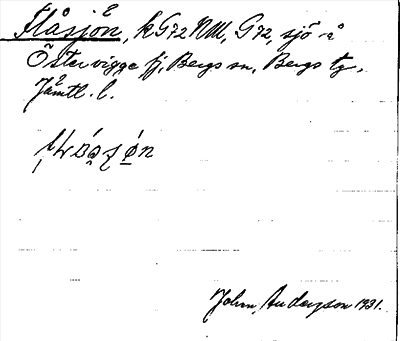 Flåsjön, k G72 NM, G72, sjö å
Östervigge fj, Bergs sn, Bergs tg,
Jämtl. l.
John Anderson 1931.